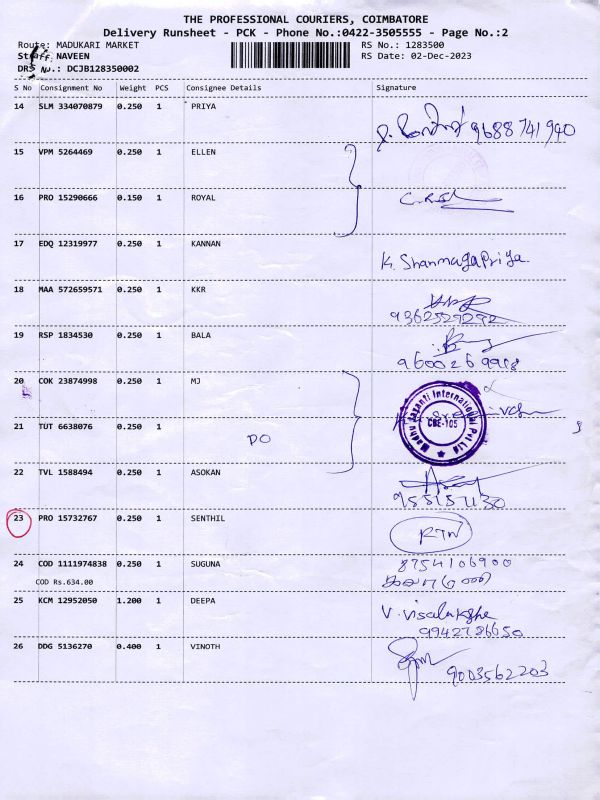 THE PROFESSIONAL COURIERS, COIMBATORE
Delivery Runsheet - PCK - Phone No.:0422-3505555 - Page No.:2
Route: MADUKARI MARKET RS No.: 1283500
Staff: NAVEEN RS Date: 02-Dec-2023
DRS No.: DCJB128350002
S No Consignment No Weight PCS Consignee Details Signature
14 SLM 334070879 0.250 1 PRIYA
9688741940
15 VPM 5264469 0.250 1 ELLEN
16 PRO 15290666 0.150 1 ROYAL
17 EDQ 12319977 0.250 1 KANNAN K. Shanmagapriya.
18 MAA 572659571 0.250 1 KKR
9362529292
19 RSP 1834530 0.250 1 BALA
9600269998
20 COK 23874998 0.250 1 MJ
Madhu Jayanti International Pvt Ltd
CBE-105
21 TUT 6638076 0.250 1 PO
22 TVL 1588494 0.250 1 ASOKAN
23 PRO 15732767 0.250 1 SENTHIL RTN
24 COD 1111974838 0.250 1 SUGUNA 8754106900
COD Rs.634.00
25 KCM 12952050 1.200 1 DEEPA V. Visalakshe
9942786650
26 DDG 5136270 0.400 1 VINOTH
9003562203